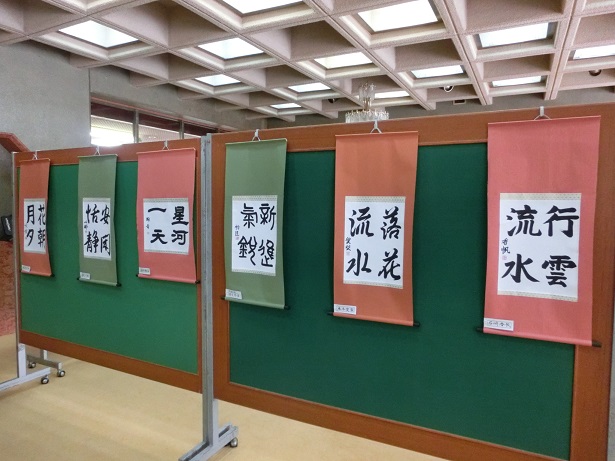 花朝
月夕
安閑
恬静
星河
一天
新進
氣鋭
落花
流水
行雲
流水